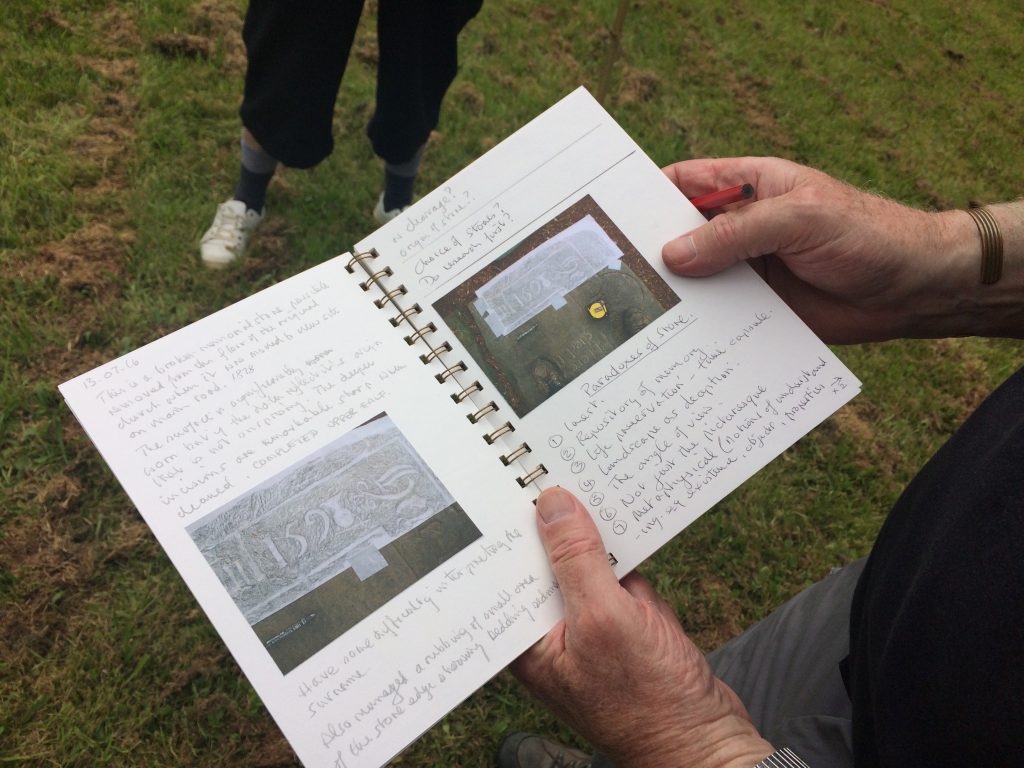 13.07.16
This is a broken memorial stone possible
removed from the floor of the original
church when it was moved to new site
on main road. 1878
The surface is significantly
worn but if the date reflects its origin
that is not surprising. The deeper
incisions are remarkable sharp when
cleaned. COMPLETED UPPER HALF.
1598
Have some difficulty interpreting the
surname
Also managed a rubbing of small area
of the stone edge showing bedding
or cleavage?
origin of stone?
Choice of stones?
Do research first?
159
Paradoxes of Stone:
① Inert.
② Repository of memory
③ Life preservation - time capsule.
④ Landscape as deception.
⑤ The angle of view.
⑥ Not just the picturesque
⑦ Metaphysical (notions of understand
-ing of existence, objects, properties →